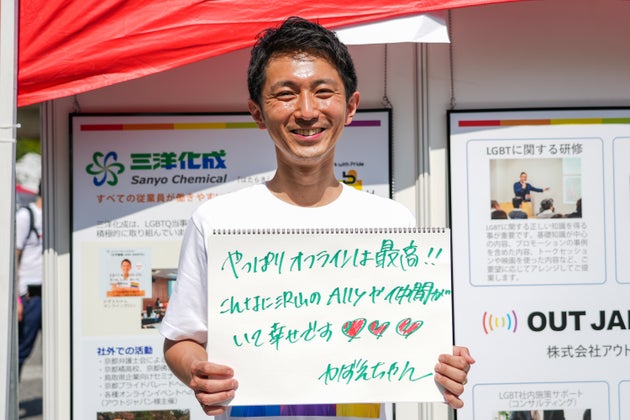 三洋化成
Sanyo Chemical
with Pride
すべての従業員が働きやす
三洋化成は、LGBTQ当事
積極的に取り組んでいま
社外での活動
・京都弁護士会によ
・鳥取県企業向けセミナ
・京都プライドパレードへ
・各種オンラインイベントへ
(アウトジャパン様主催)
やっぱりオフラインは最高!!
こんなに沢山のAllyや仲間が
いて幸せです
わばえちゃん
LGBTに関する研修
LGBTに関する正しい知識を得る
事が重要です。基礎知識が中心
の内容、プロモーションの事例
を含めた内容、トークセッショ
ンや映画を使った内容など、ご
要望に応じてアレンジしてご提
案します。
OUT JA
株式会社アウト
LGBT社内施策サポート
(コンサルティング)
LGBT